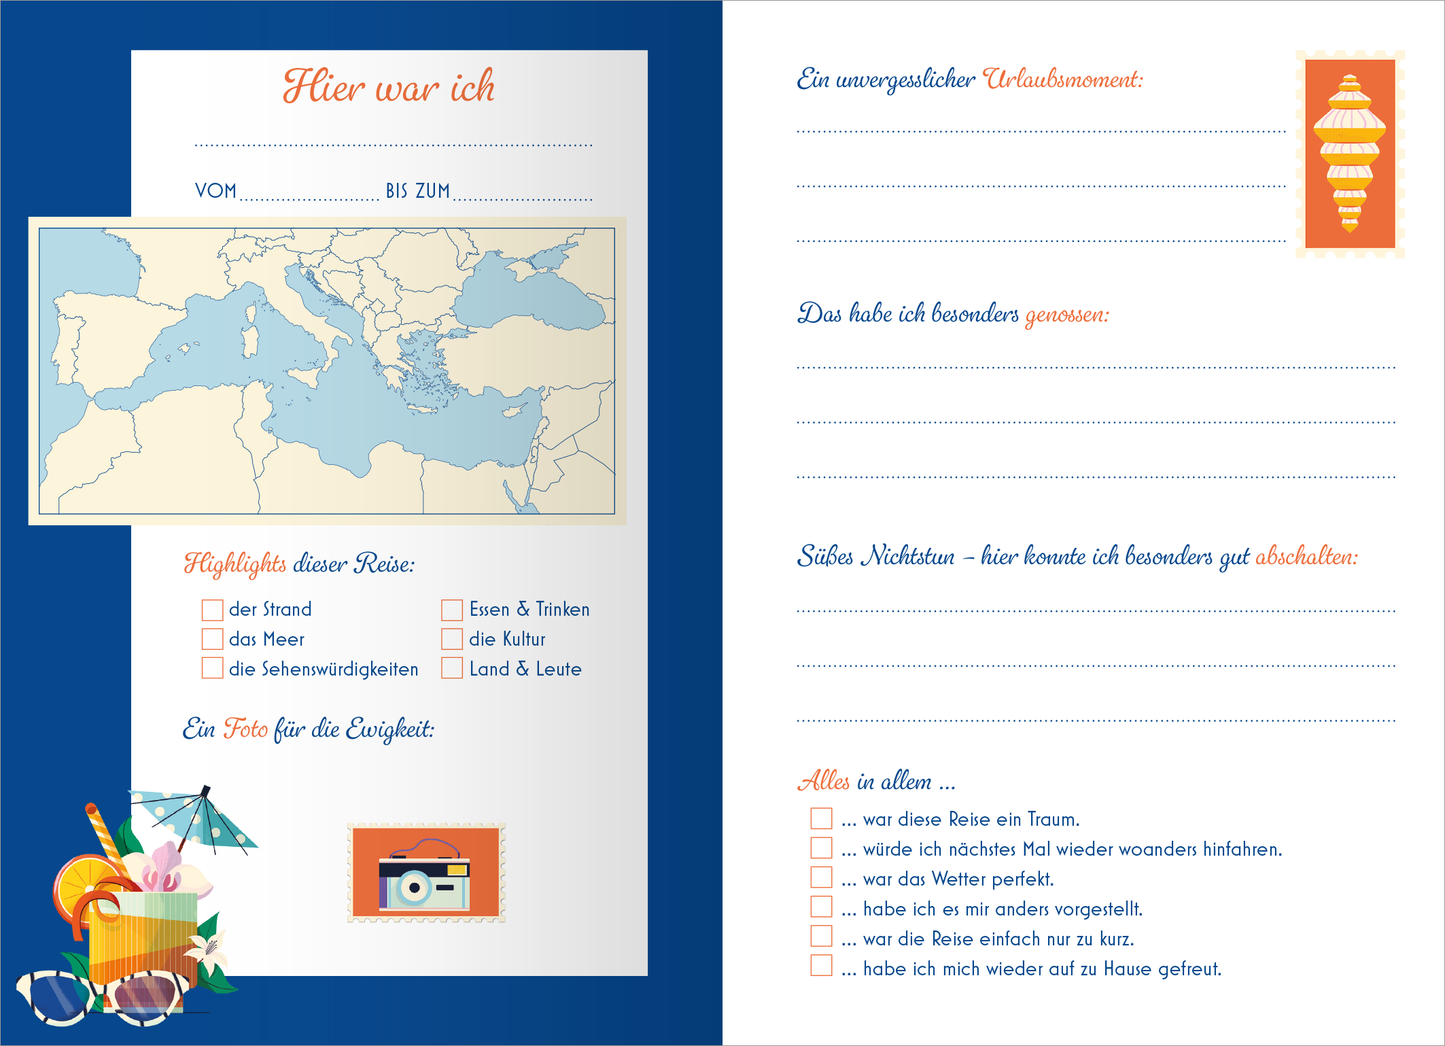 Hier war ich
VOM BIS ZUM
Highlights dieser Reise:
der Strand
das Meer
die Sehenswürdigkeiten
Essen & Trinken
die Kultur
Land & Leute
Ein Foto für die Ewigkeit:
Ein unvergesslicher Urlaubsmoment:
Das habe ich besonders genossen:
Süßes Nichtstun – hier konnte ich besonders gut abschalten:
Alles in allem ...
... war diese Reise ein Traum.
... würde ich nächstes Mal wieder woanders hinfahren.
... war das Wetter perfekt.
... habe ich es mir anders vorgestellt.
... war die Reise einfach nur zu kurz.
... habe ich mich wieder auf zu Hause gefreut.